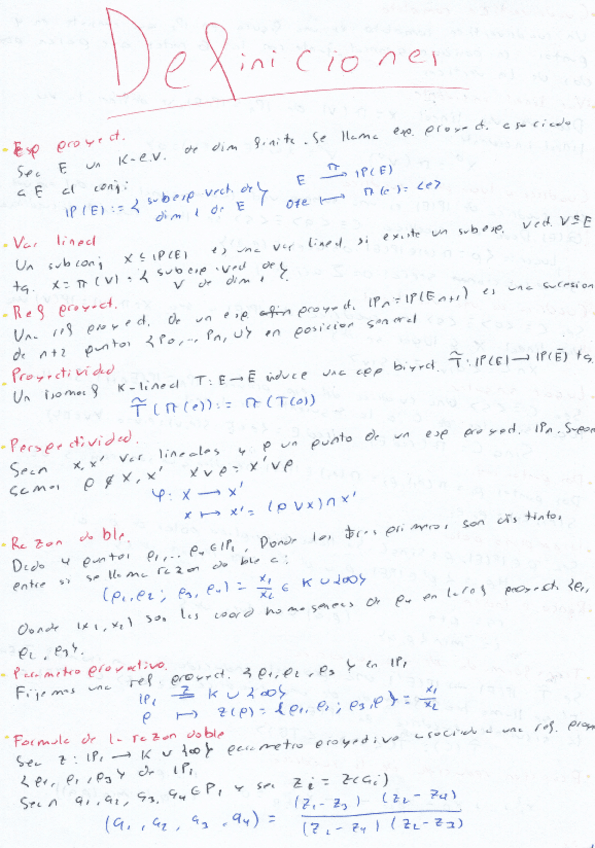 Definiciones
Esp proyect.
Sea E un K-e.v. de dim finita. Se llama esp. proyect. asociado
a E al conj:
IP(E) := { subesp vect. de dim 1 de E } E —π→ IP(E)
0≠e ↦ π(e) = <e>
Var lineal
Un subconj X ⊆ IP(E) es una var lineal si existe un subesp. vect. V ⊆ E
tq. X = π(V) = { subesp. vect de V de dim 1 }.
Ref proyect.
Una ref proyect. de un esp proyect. IPn = IP(En+1) es una sucesion
de n+2 puntos {P0, ..., Pn, U} en posicion general
Proyectividad
Un isomorf K-lineal T: E → Ē induce una app biyect. T̃: IP(E) → IP(Ē) tq.
T̃(π(e)) := π(T(e))
Perspectividad.
Sean X, X' var lineales y p un punto de un esp proyect. IPn. Supon
gamos p ∉ X, X' X∨p = X'∨p
φ: X → X'
x ↦ x' = (p∨x) ∩ X'
Razon doble.
Dado 4 puntos p1, ... p4 ∈ IP1, Donde los tres primeros son distintos
entre si se llama razon doble a:
(p1, p2; p3, p4) = x1/x2 ∈ K ∪ {∞}
Donde (x1, x2) son las coord homogeneas de p4 en la ref proyect {p1,
p2, p3}.
Parametro proyectivo.
Fijemos una ref proyect. {p1, p2, p3} en IP1
IP1 —z→ K ∪ {∞}
p ↦ z(p) = {p1, p2; p3, p} = x1/x2
Formula de la razon doble
Sea z: IP1 → K ∪ {∞} parametro proyectivo asociado a una ref. proye
{p1, p2, p3} de IP1
Sean q1, q2, q3, q4 ∈ P1 y sea zi = z(qi)
(q1, q2, q3, q4) = (z1-z3)-(z2-z4) / (z1-z4)(z2-z3)